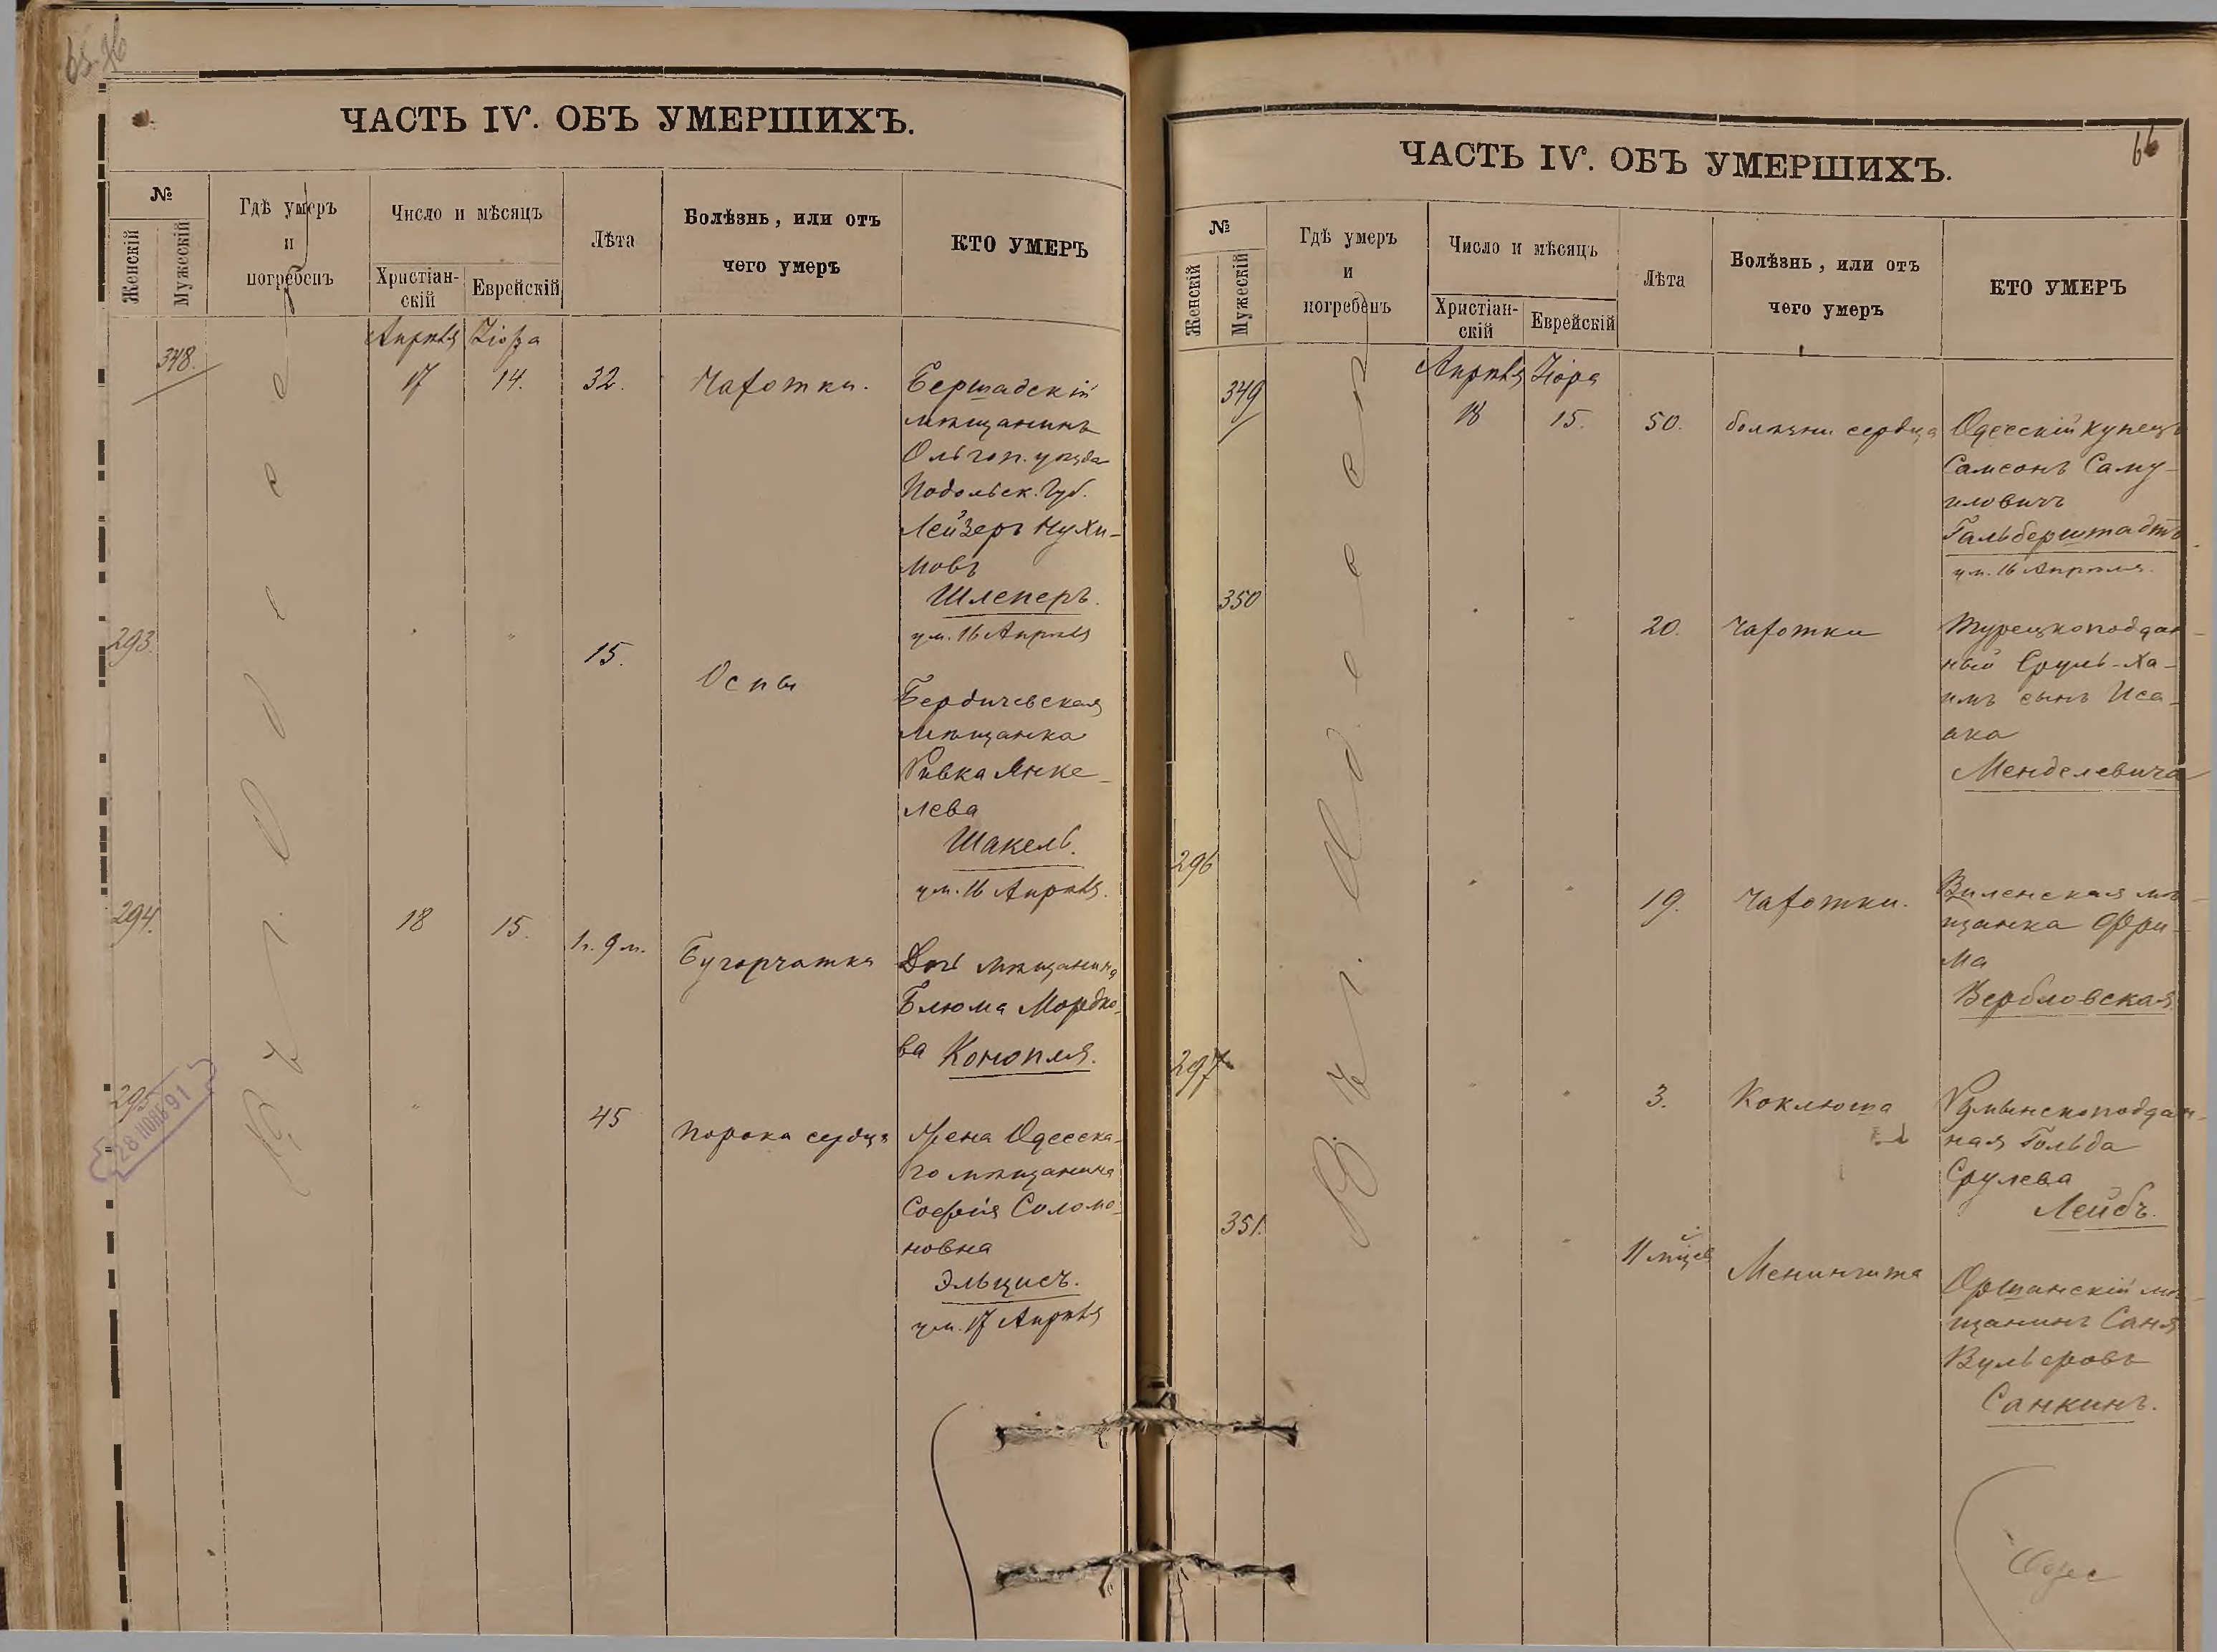 ЧАСТЬ IV. ОБЪ УМЕРШИХЪ.
№
Женскій
Мужескій
Гдѣ умеръ
и
погребенъ
Число и мѣсяцъ
Христіан-
скій
Еврейскій
Лѣта
Болѣзнь, или отъ
чего умеръ
КТО УМЕРЪ
В г. Одессе
Апрѣля Іора
348. 17 14. 32. Чахотки. Бершадскій
мѣщанинъ
Ольгоп. уѣзда
Подольск. Губ.
Лейзеръ Нухи-
мовъ
Шлеперъ.
ум. 16 Апрѣля
293. " " 15. Оспы Бердичевская
мѣщанка
Ривка Янке-
лева
Шакель.
ум. 16 Апрѣля.
294. 18 15. 1 г. 9 м. Бугорчатка Дочь мѣщанина
Блюма Мордко-
ва Конопля.
295 " 45 Порока сердца Жена Одесска-
го мѣщанина
Софія Соломо-
новна
Эльцисъ.
ум. 17 Апрѣля
28 НОЯБ 91
66
ЧАСТЬ IV. ОБЪ УМЕРШИХЪ.
№
Женскій
Мужескій
Гдѣ умеръ
и
погребенъ
Число и мѣсяцъ
Христіан-
скій
Еврейскій
Лѣта
Болѣзнь, или отъ
чего умеръ
КТО УМЕРЪ
В г. Одессе
Апрѣля Іора
349 18 15. 50. болѣзни сердца Одесскій купецъ
Самсонъ Саму-
иловичъ
Гальберштадтъ.
ум. 16 Апрѣля.
350 " " 20. Чахотки Турецкоподдан-
ный Сруль-Ха-
имъ сынъ Иса-
ака
Менделевича
296 " " 19. Чахотки. Виленская мѣ-
щанка Фри-
ма
Вербловская
297 " " 3. Коклюша Румынскоподдан-
ная Гольда
Срулева
Лейбъ.
351. " " 11 мѣцев Менингита Оршанскій мѣ-
щанинъ Саня
Вульфовъ
Санкинъ.